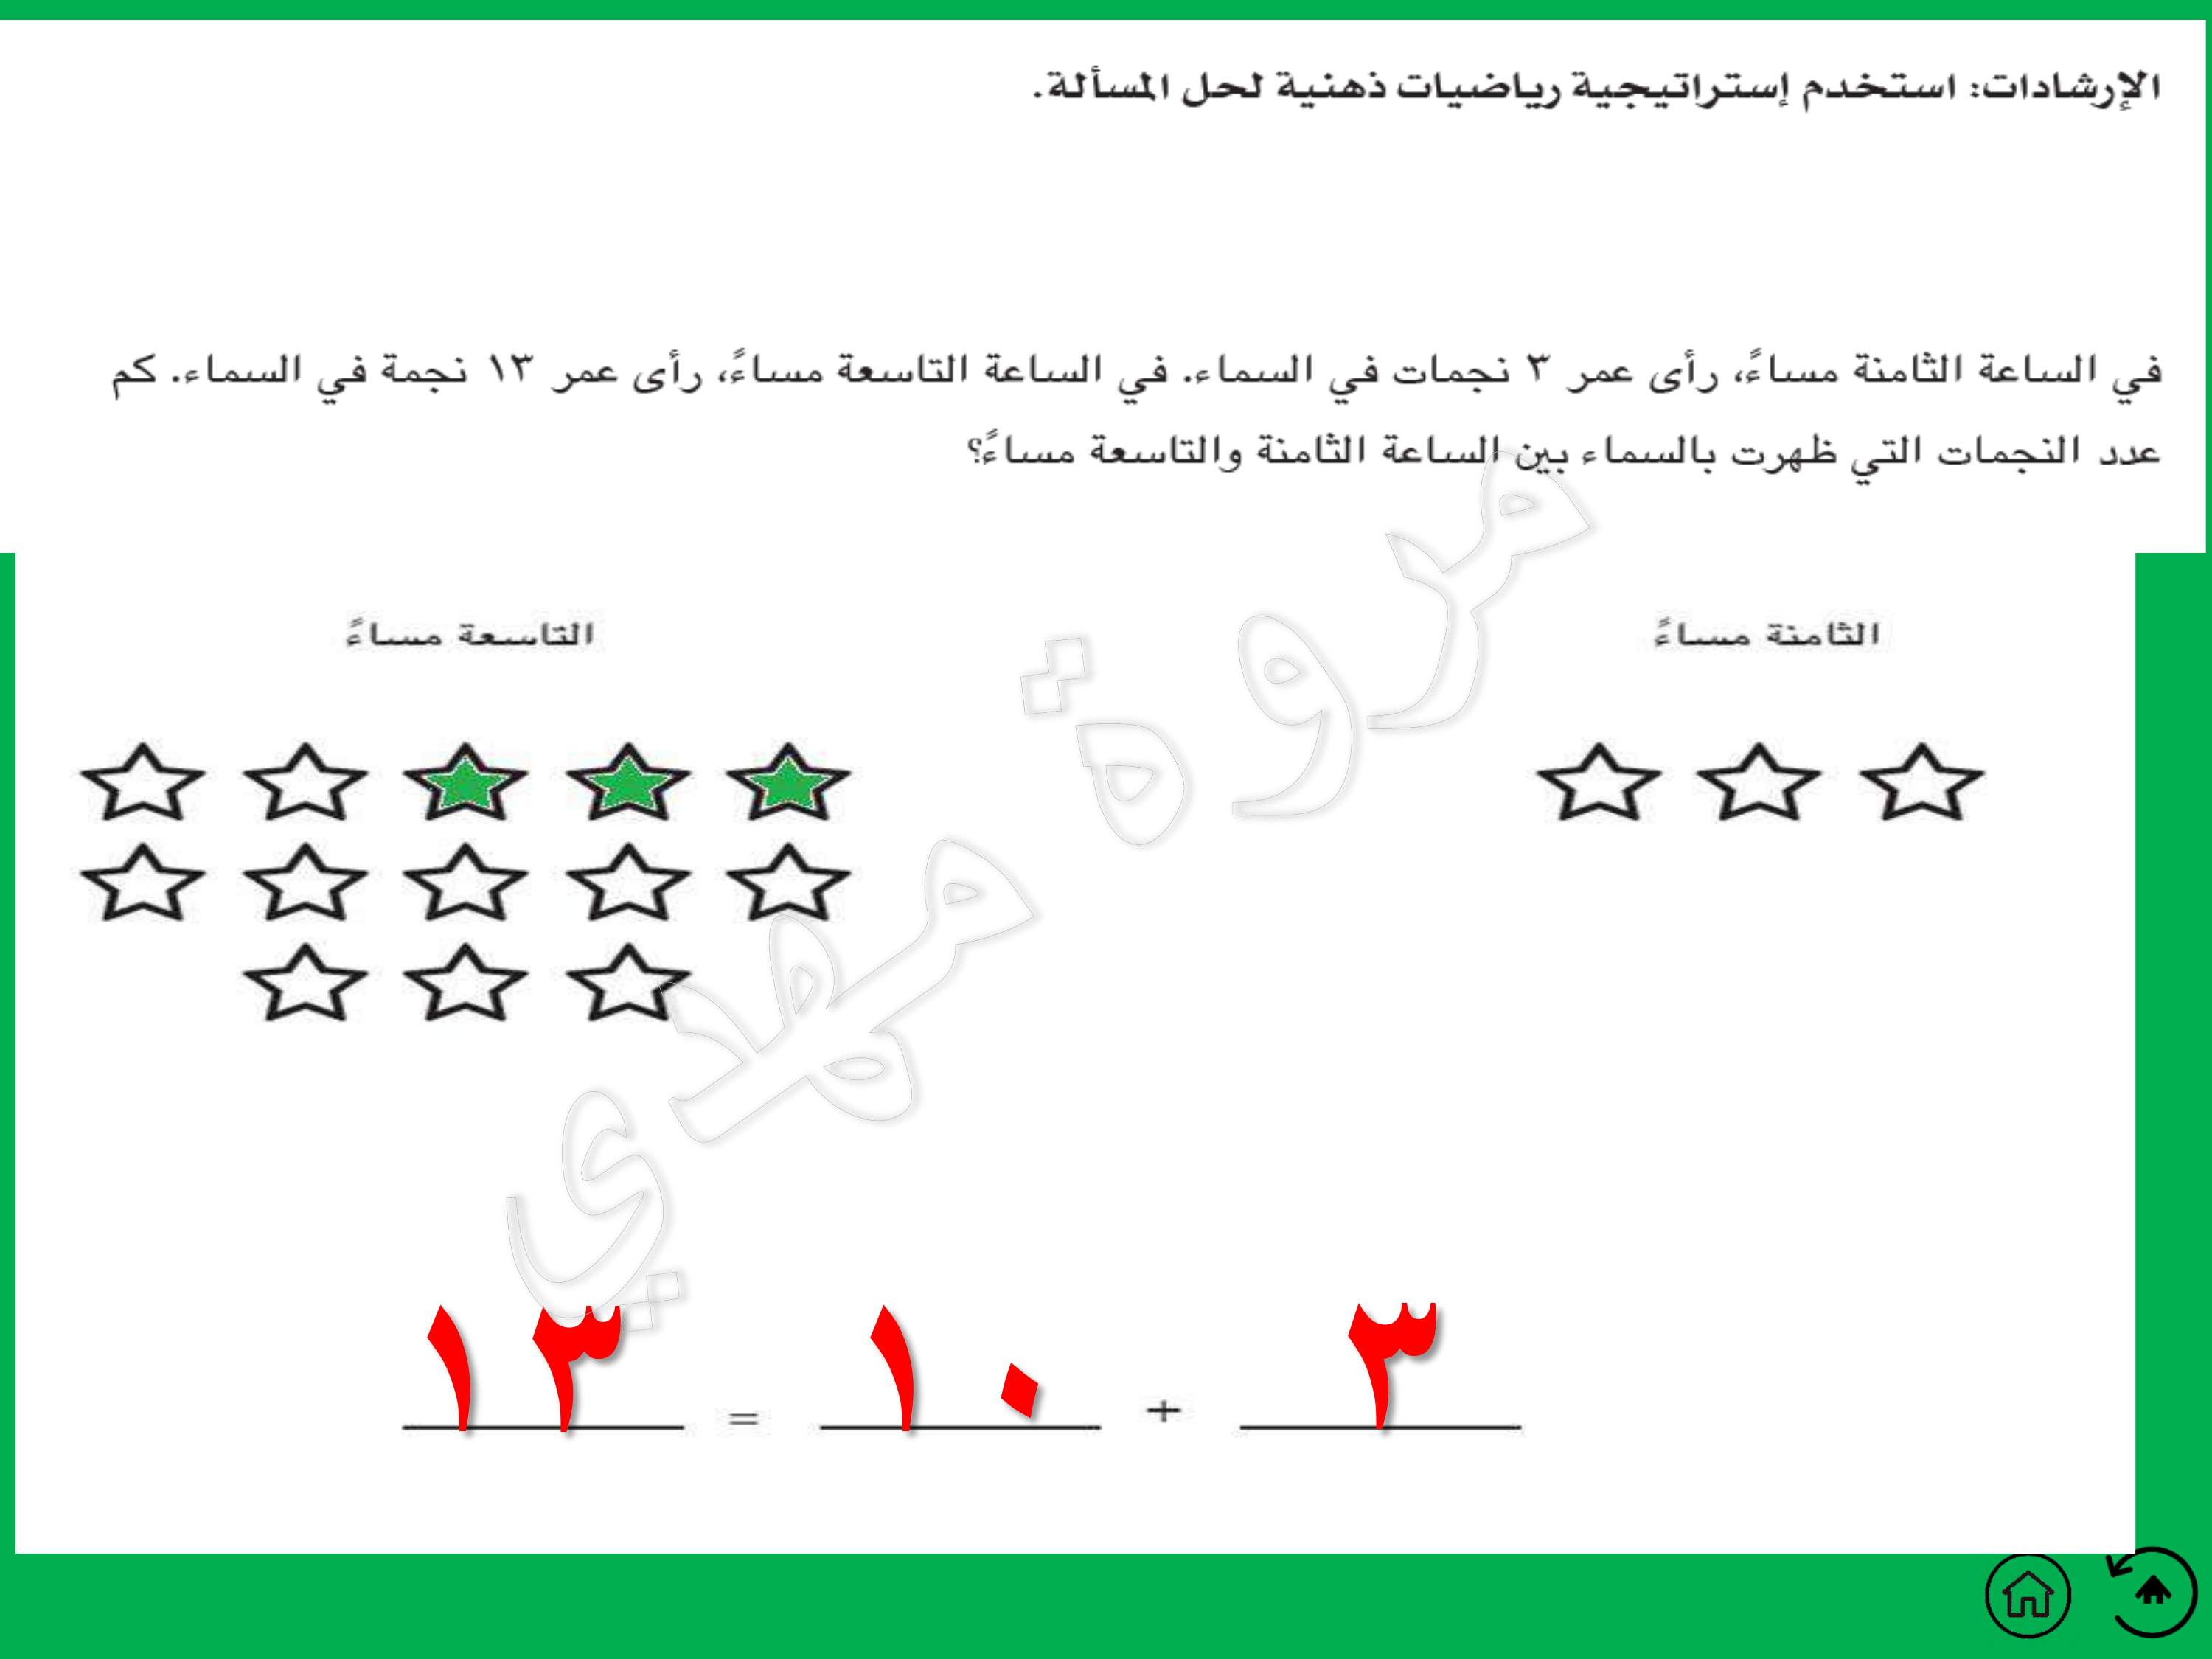 الإرشادات: استخدم إستراتيجية رياضيات ذهنية لحل المسألة.
في الساعة الثامنة مساءً، رأى عمر ٣ نجمات في السماء. في الساعة التاسعة مساءً، رأى عمر ١٣ نجمة في السماء. كم
عدد النجمات التي ظهرت بالسماء بين الساعة الثامنة والتاسعة مساءً؟
الثامنة مساءً
التاسعة مساءً
مروة مهدي
٣ + ١٠ = ١٣